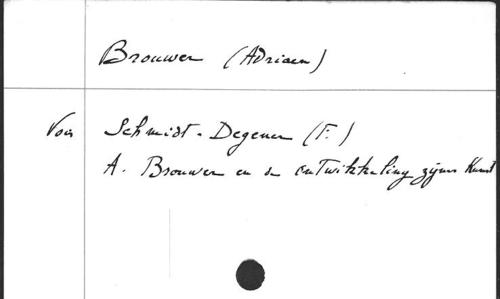 Brouwer (Adriaen)
Voir Schmidt-Degener (F.)
A. Brouwer en de ontwikkeling zijner Kunst